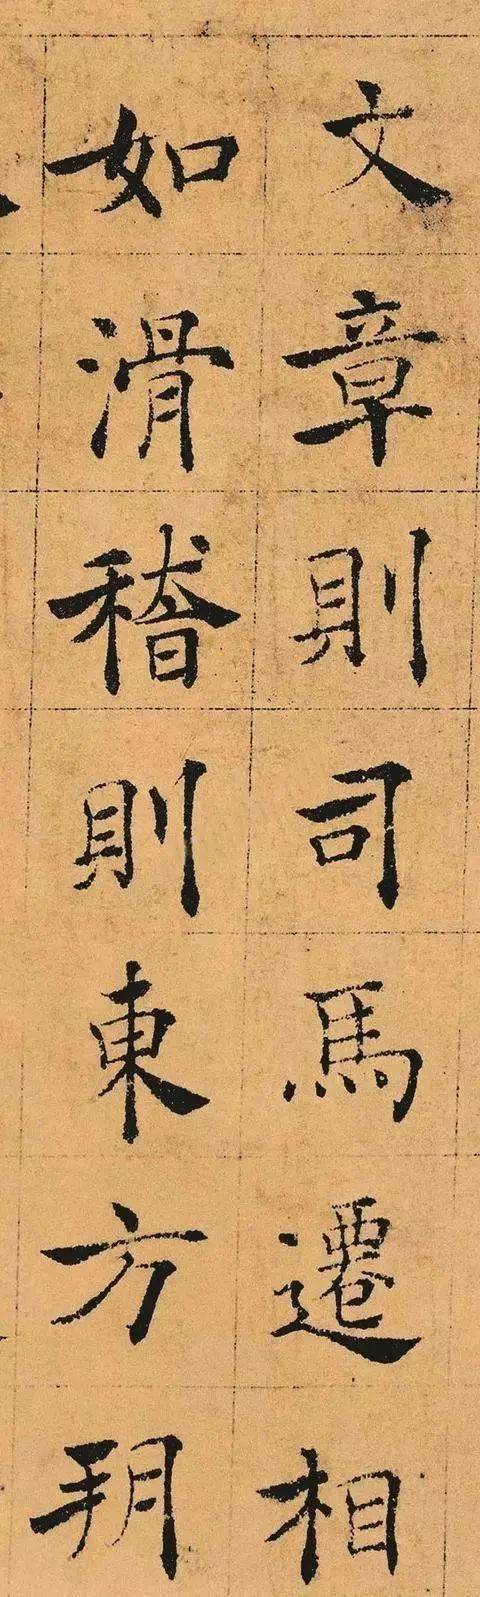 文章則司馬遷相
如滑稽則東方朔